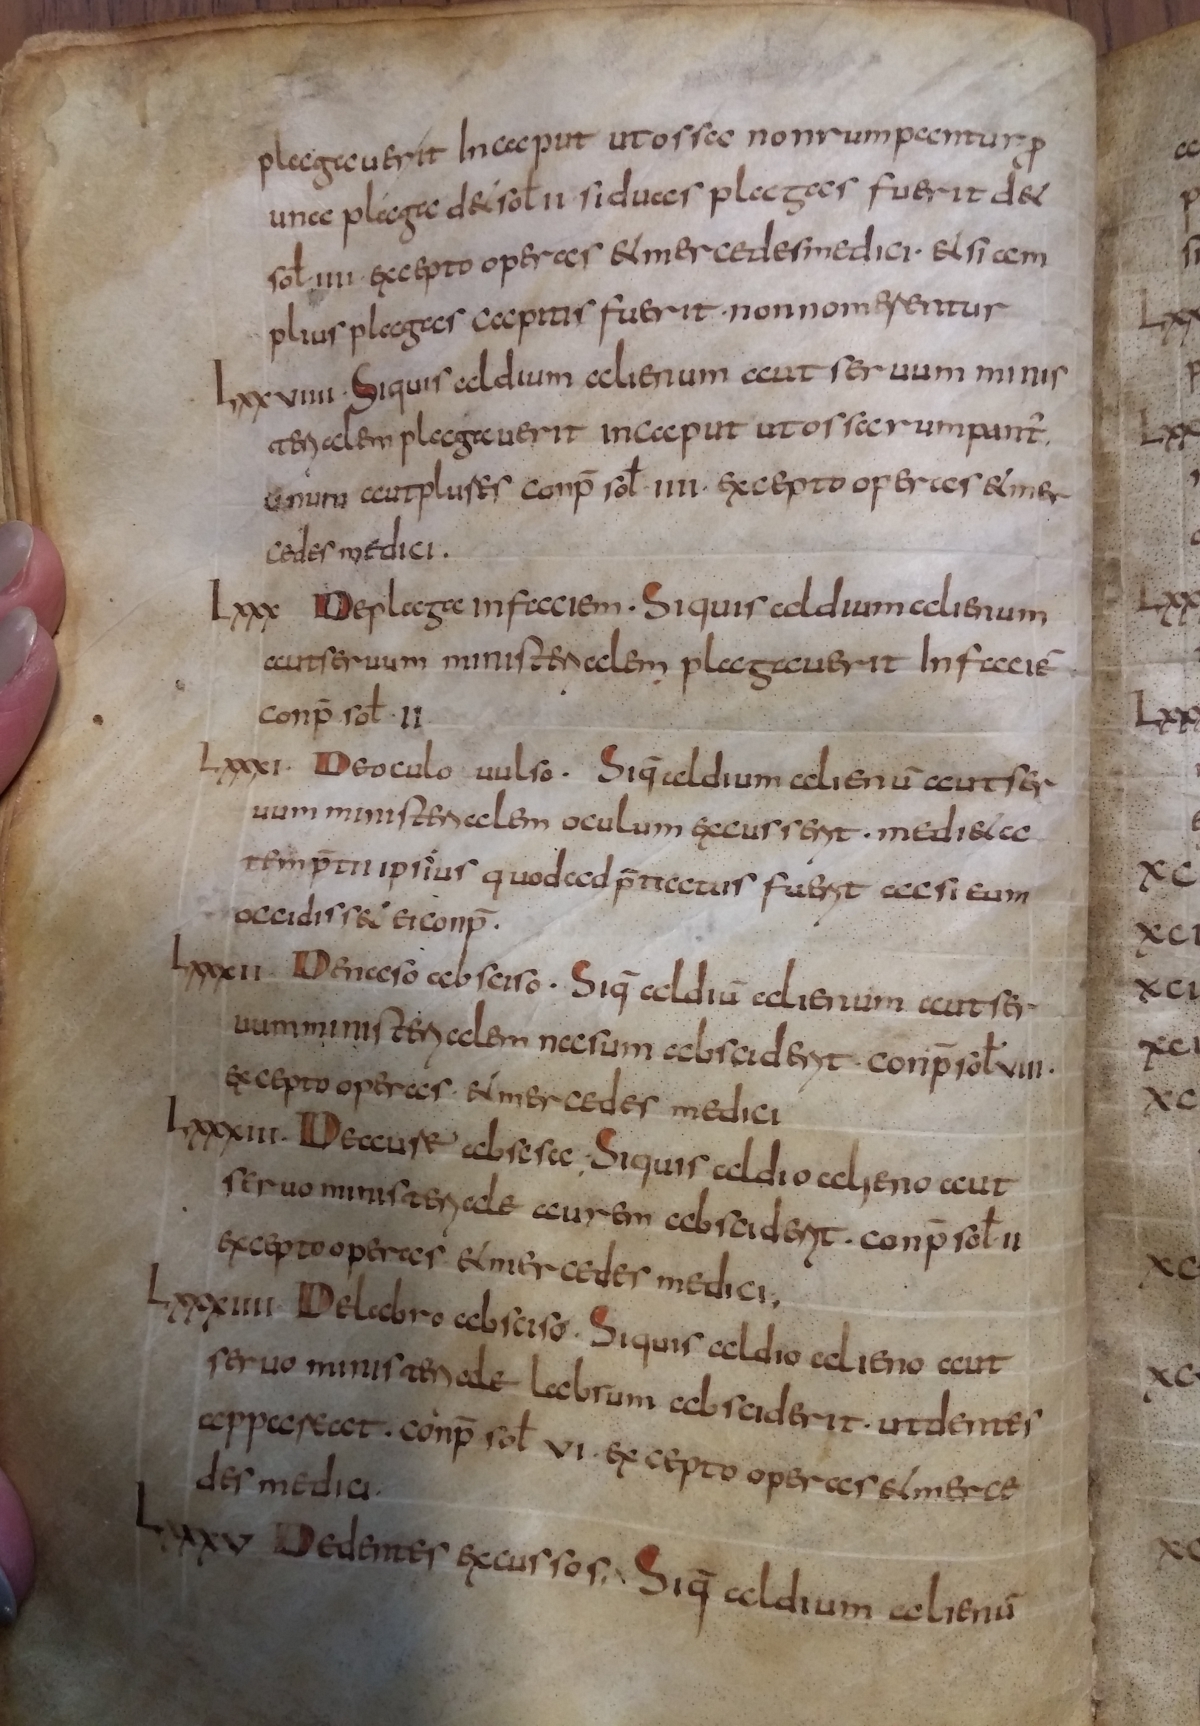 plagauerit In caput ut ossa non rumpantur p̱
una plaga det sol̄ II · si duas plagas fuerit det
sol̄ · IIII · excepto operas et mercedes medici · et si am
plius plagas capitis fuerit · non nomerentur
Lxxviiii · Siquis aldium alienum aut seruum minis
terialem plagauerit in caput ut ossa rumpant̄ ·
unum aut plures conp̄ sol̄ · IIII · excepto operas et mer
cedes medici ·
Lxxx De plaga in faciem · Siquis aldium alienum
aut seruum ministerialem plagauerit In faciē
conp̄ sol̄ · II
Lxxxi · De oculo uulso · Siq̄ aldium alienū aut ser
uum ministerialem oculum excusserit · medieta
tem p̄tii ipsius quod adp̄tiatus fuerit ac si eum
occidisset ei conp̄ ·
Lxxxii · De naso absciso · Siq̄ aldiū alienum aut ser
uum ministerialem nasum absciderit · conp̄ sol̄ VIII ·
excepto operas · et mercedes medici
Lxxxiii · De aure abscisa · Siquis aldio alieno aut
seruo ministeriale aurem absciderit · conp̄ sol̄ · II
excepto operas et mercedes medici ·,
Lxxxiiii · De labro absciso · Siquis aldio alieno aut
seruo ministeriale labrum absciderit · ut dentes
appareat · conp̄ sol̄ VI · excepto operas et merce
des medici ·
Lxxxv De dentes excussos · Siq̄ aldium alienū